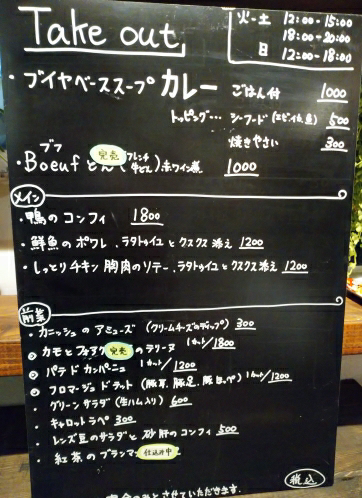 Take out
火-土 12:00-15:00
18:00-20:00
日 12:00-18:00
・ブイヤベーススープカレー ごはん付 1000
トッピング… シーフード(エビ、イカ、魚) 500
焼きやさい 300
ブフ
・Boeuf どん 完売 (フレンチ牛どん) 赤ワイン煮 1000
メイン
・鴨のコンフィ 1800
・鮮魚のポワレ、ラタトゥイユとクスクス添え 1200
・しっとりチキン胸肉のソテー、ラタトゥイユとクスクス添え 1200
前菜
・カニッシュのアミューズ (クリームチーズのディップ) 300
カモとフォアグ 完売 のテリーヌ 1カット/1800
パテドカンパーニュ 1カット/1200
フロマージュドテット (豚耳、豚足、豚ほっぺ) 1カット/1200
・グリーンサラダ(生ハム入り) 600
・キャロットラペ 300
・レンズ豆のサラダと砂肝のコンフィ 500
・紅茶のブランマ 仕込み中
税込
とさせていただきます.